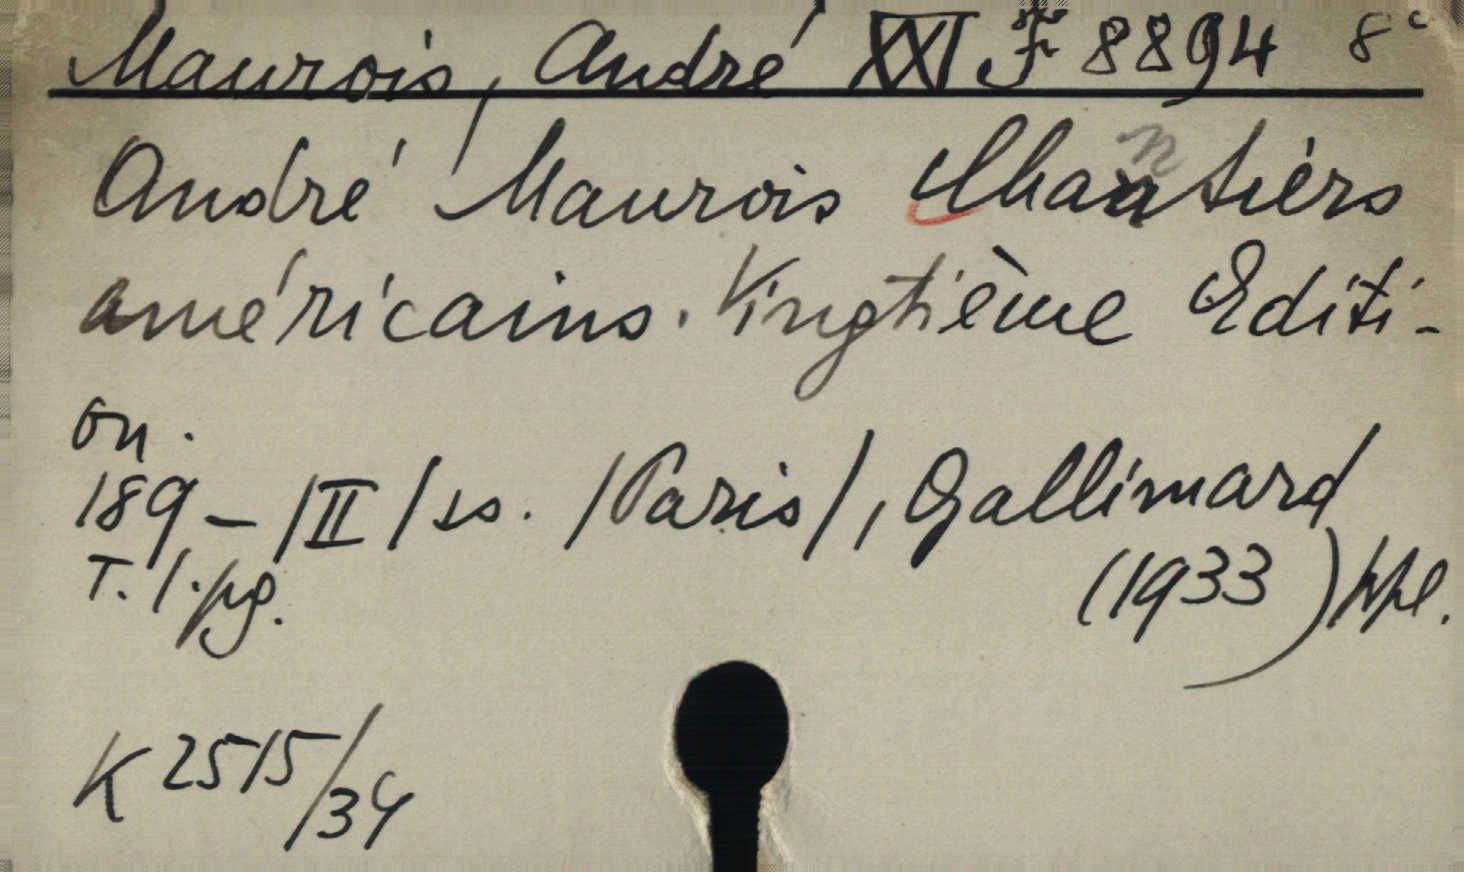 Maurois, André XXI F 8894 8°
André Maurois Chantiers
américains. Vingtième Editi-
on.
189 - /II/ ss. /Paris/, Gallimard
T. 1. pg. (1933)
K 2515/34